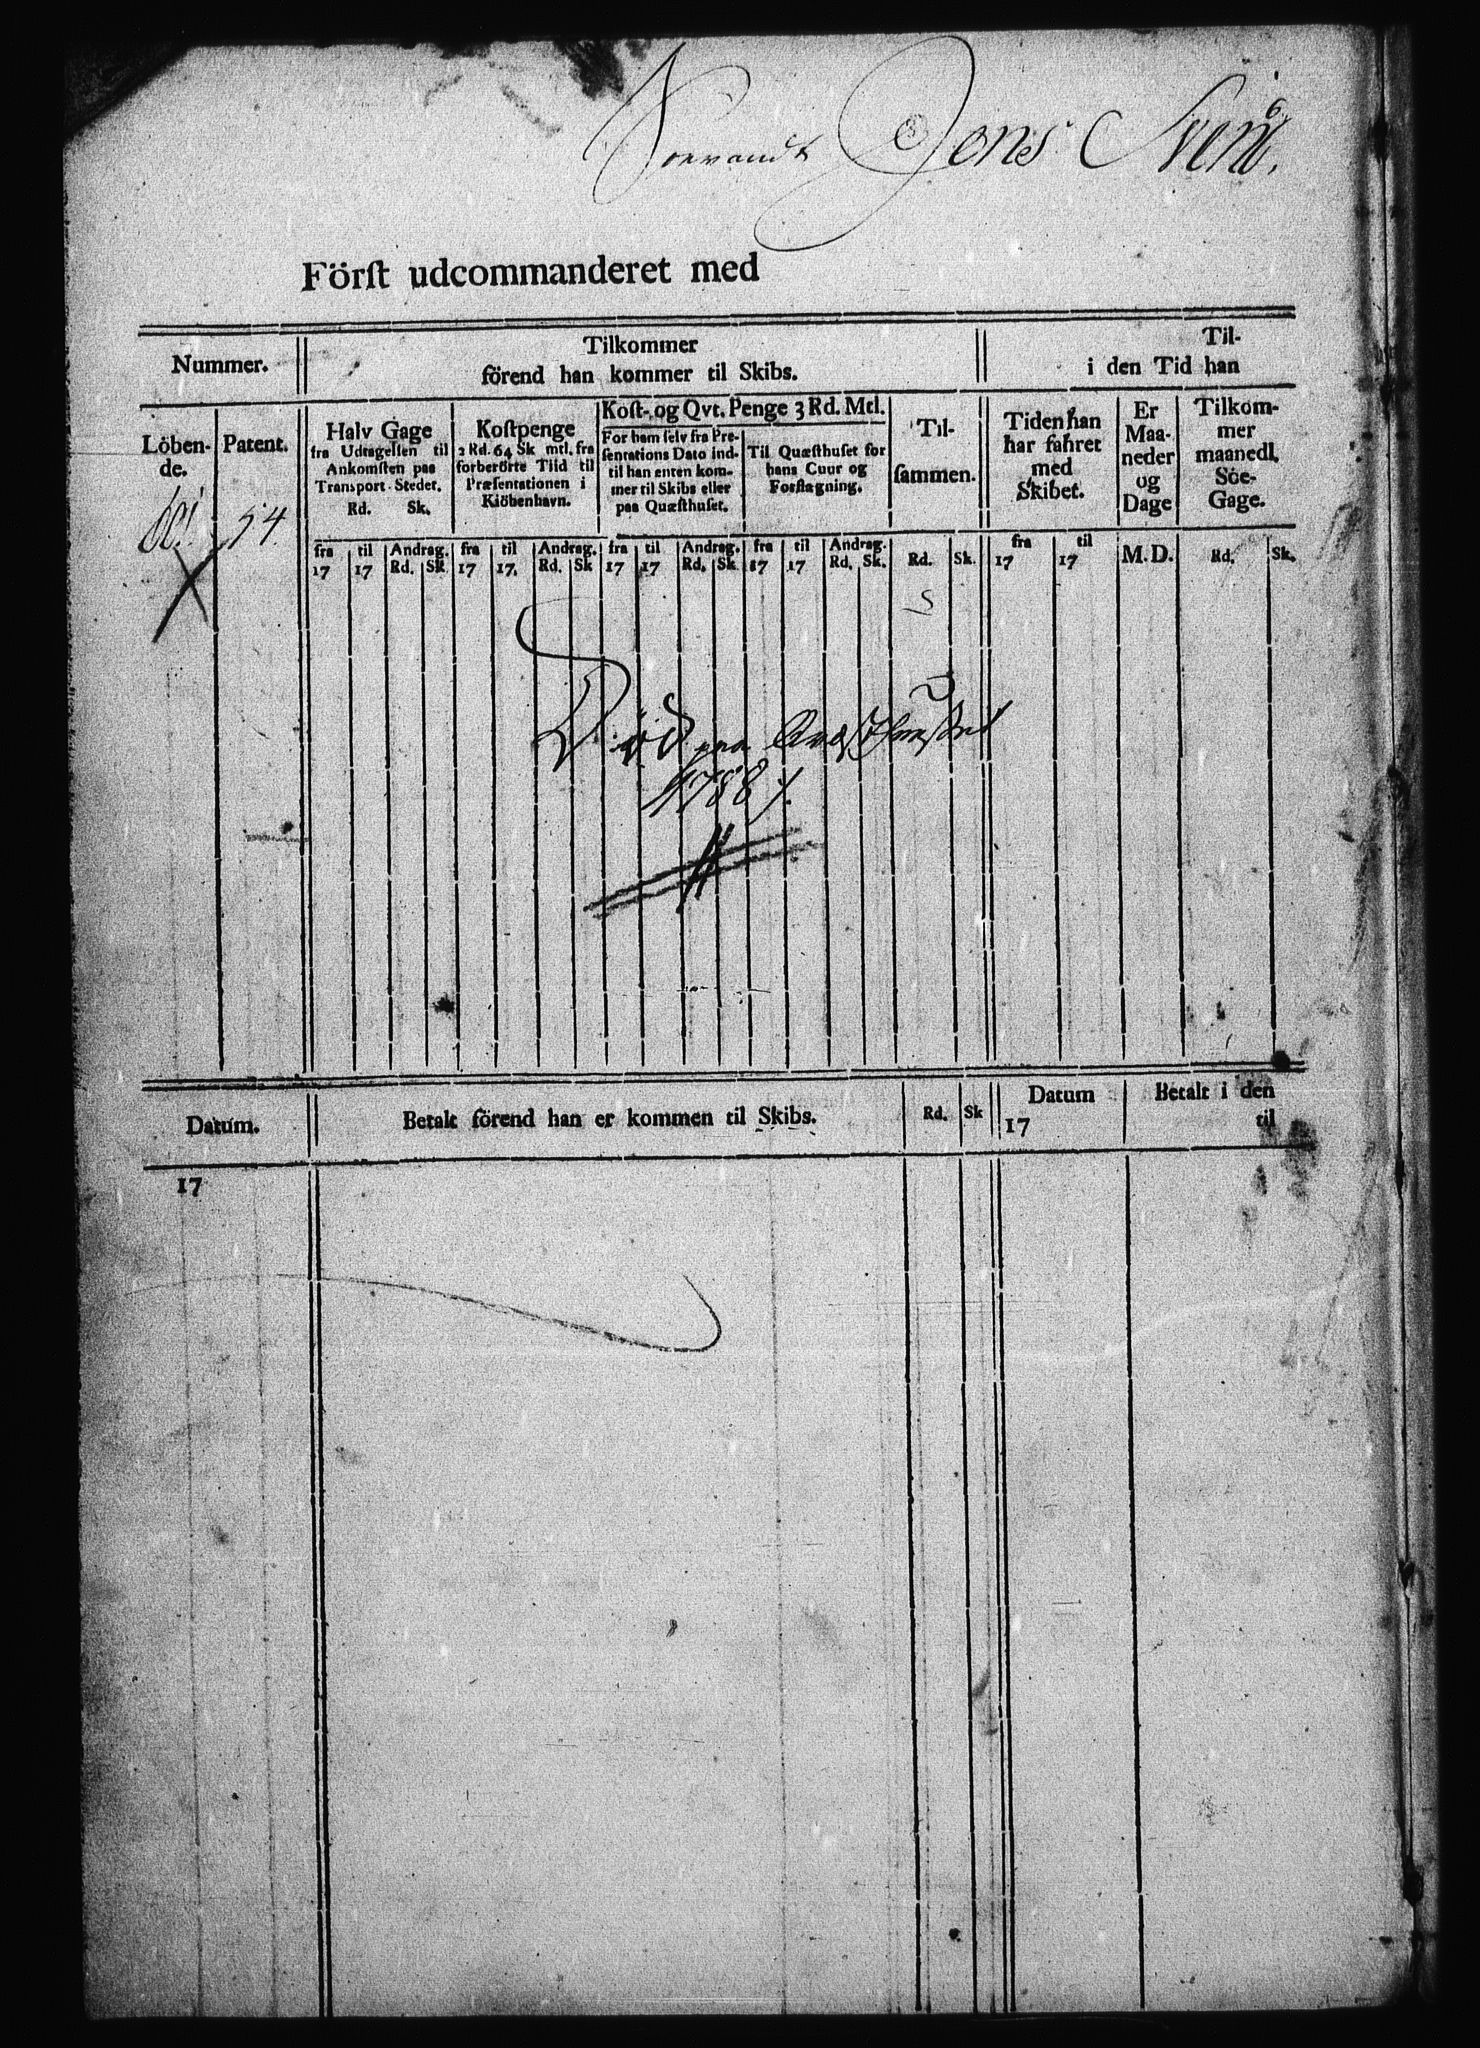 Jens Svend.
Först udcommanderet med
Nummer.
Tilkommer
förend han kommer til Skibs.
Til-
i den Tid han
Löben-
de.
Patent.
Halv Gage
fra Udtagelsen til
Ankomsten paa
Transport-Stedet.
Rd. Sk.
Kostpenge
2 Rd. 64 Sk mtl. fra
forberörte Tiid til
Præsentationen i
Kiöbenhavn.
Kost- og Qvt. Penge 3 Rd. Mtl.
For ham selv fra Pre-
sentations Dato ind-
til han enten kom-
mer til Skibs eller
paa Quæsthuset.
Til Quæsthuset for
hans Cuur og
Forflagning.
Til-
sammen.
Tiden han
har fahret
med
Skibet.
Er
Maa-
neder
og
Dage
Tilkom-
mer
maanedl.
Söe-
Gage.
54.
fra til Andrag. fra til Andrag. fra til Andrag. fra til Andrag. fra til
17 17 Rd. Sk 17 17. Rd. Sk 17 17 Rd. Sk 17 17 Rd. Sk. Rd. Sk. 17 17 M. D. Rd. Sk.
Död paa Qvæsthuuset
1788
Datum.
Betalt förend han er kommen til Skibs.
Rd. Sk
Datum
17
Betalt i den
til
17